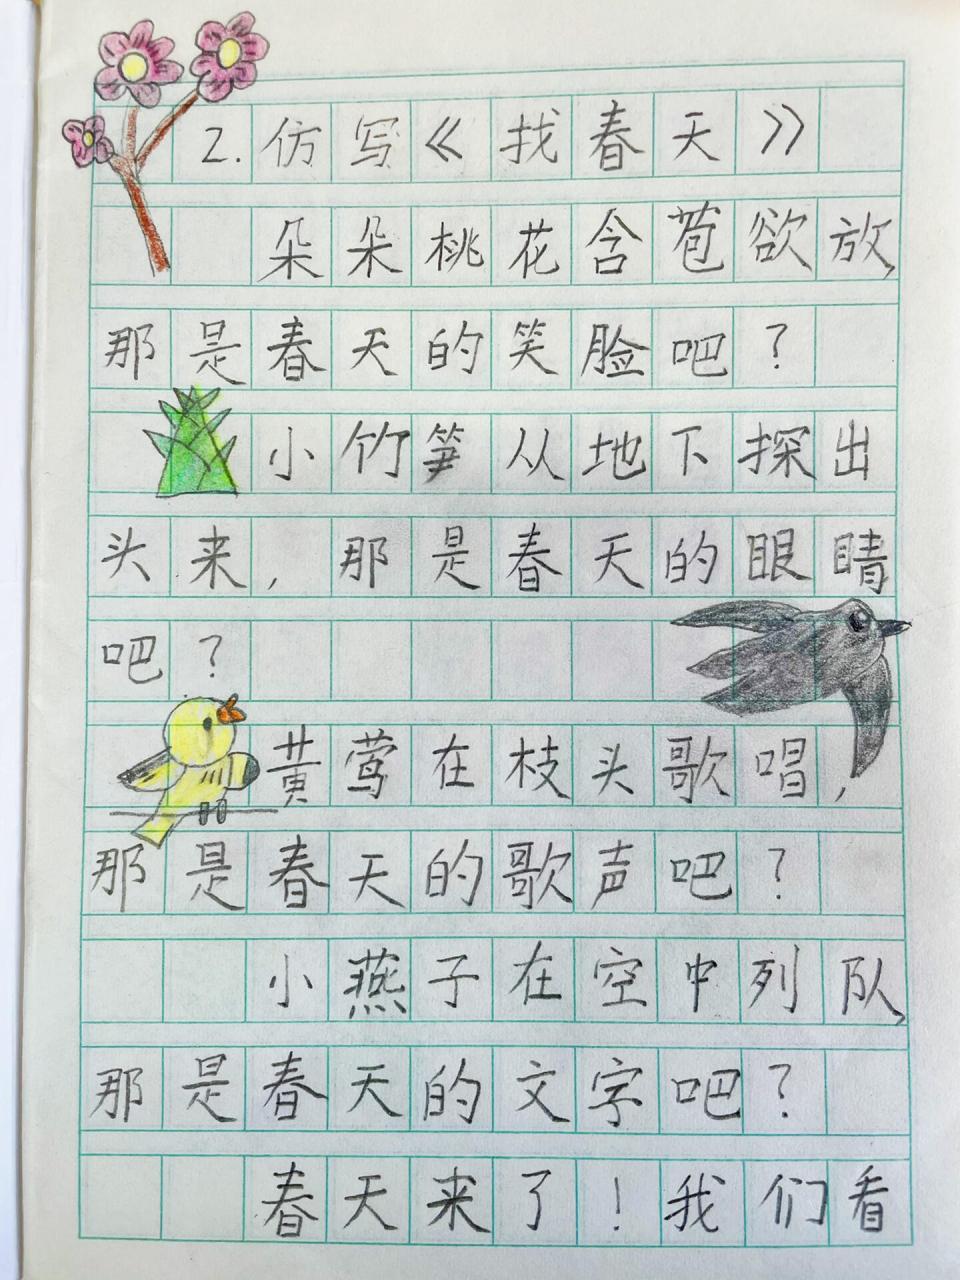 2.仿写《找春天》
朵朵桃花含苞欲放,
那是春天的笑脸吧?
小竹笋从地下探出
头来,那是春天的眼睛
吧?
黄莺在枝头歌唱,
那是春天的歌声吧?
小燕子在空中列队,
那是春天的文字吧?
春天来了!我们看